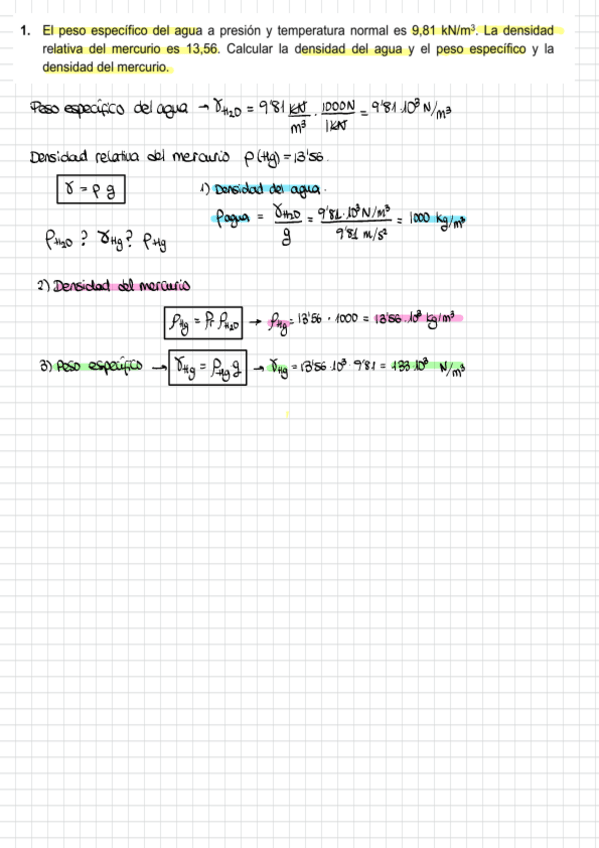 1. El peso específico del agua a presión y temperatura normal es 9,81 kN/m³. La densidad
relativa del mercurio es 13,56. Calcular la densidad del agua y el peso específico y la
densidad del mercurio.
Peso específico del agua → γH₂O = 9'81 kN/m³ · 1000N/1kN = 9'81·10³ N/m³
Densidad relativa del mercurio ρ(Hg) = 13'56
γ = ρ g
1) Densidad del agua.
ρagua = γH₂O/g = 9'81·10³N/m³ / 9'81 m/s² = 1000 kg/m³
ρH₂O? γHg? ρHg
2) Densidad del mercurio
ρHg = ρr ρH₂O → ρHg = 13'56 · 1000 = 13'56·10³ kg/m³
3) Peso específico → γHg = ρHg g → γHg = 13'56·10³·9'81 = 133·10³ N/m³